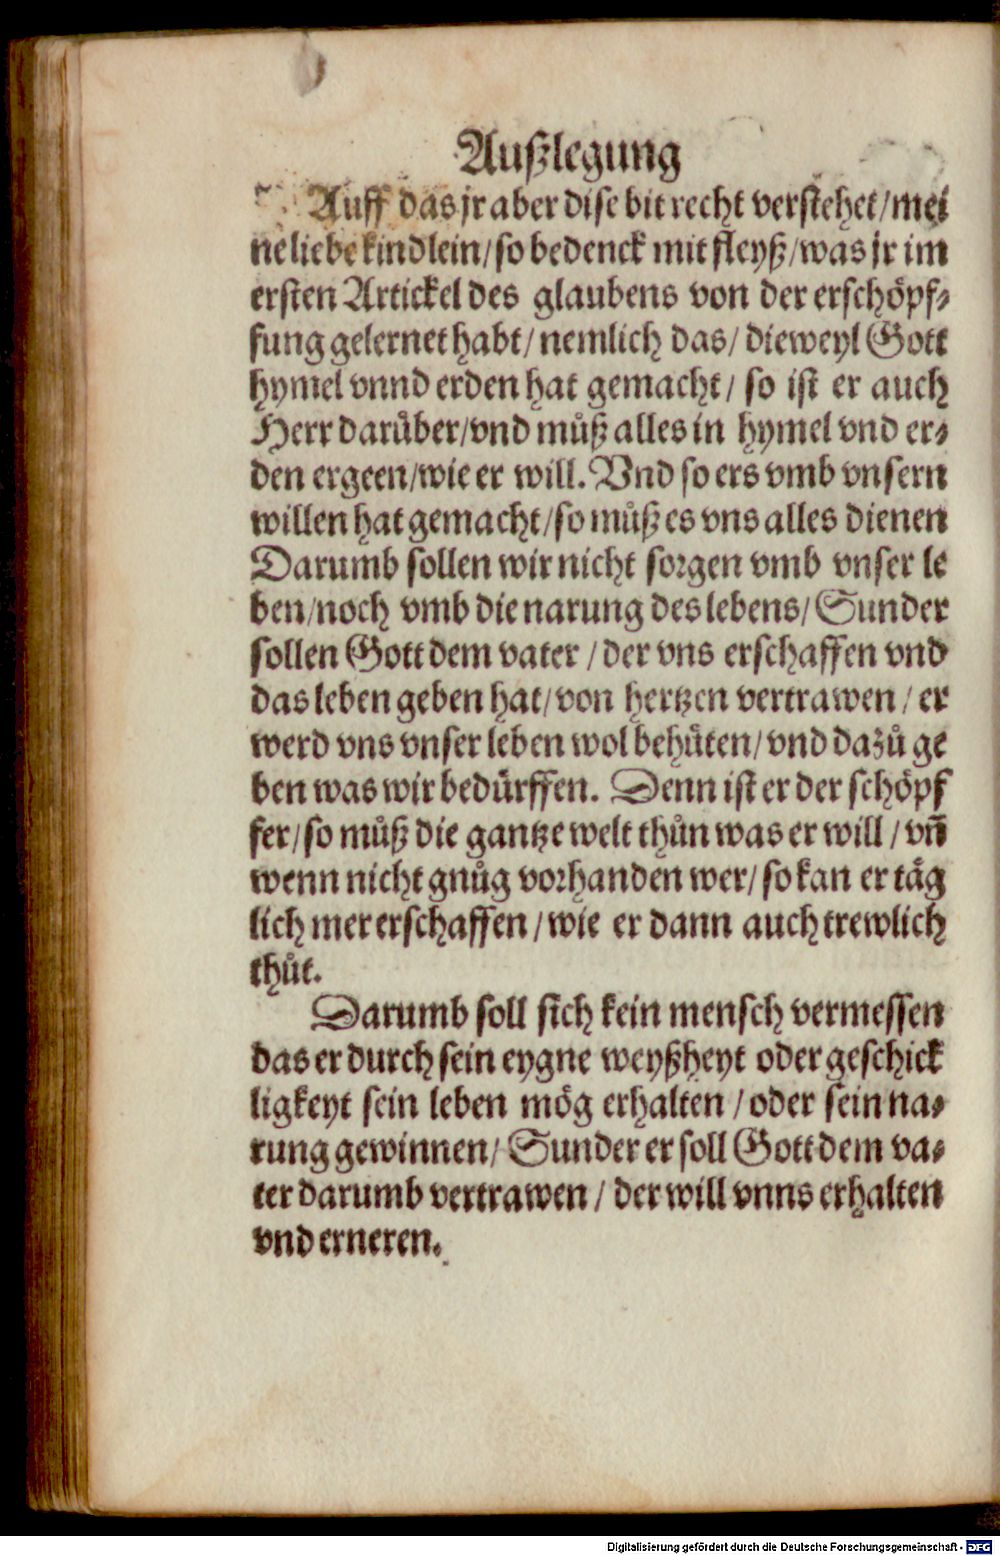 Außlegung
Auff das jr aber dise bit recht verstehet/mei
ne liebe kindlein/so bedenck mit fleyß/was jr im
ersten Artickel des glaubens von der erschöpf⸗
fung gelernet habt/nemlich das/dieweyl Gott
hymel vnnd erden hat gemacht/ so ist er auch
Herr darüber/vnd můß alles in hymel vnd er⸗
den ergeen/wie er will. Vnd so ers vmb vnsern
willen hat gemacht/so můß es vns alles dienen
Darumb sollen wir nicht sorgen vmb vnser le
ben/noch vmb die narung des lebens/Sunder
sollen Gott dem vater/der vns erschaffen vnd
das leben geben hat/von hertzen vertrawen/er
werd vns vnser leben wol behüten/vnd dazů ge
ben was wir bedürffen. Denn ist er der schöpf
fer/so můß die gantze welt thůn was er will/vñ
wenn nicht gnůg vorhanden wer/so kan er täg
lich mer erschaffen/wie er dann auch trewlich
thůt.
Darumb soll sich kein mensch vermessen
das er durch sein eygne weyßheyt oder geschick
ligkeyt sein leben mög erhalten/oder sein na⸗
rung gewinnen/Sunder er soll Gott dem va⸗
ter darumb vertrawen/der will vnns erhalten
vnd erneren.
Digitalisierung gefördert durch die Deutsche Forschungsgemeinschaft - DFG